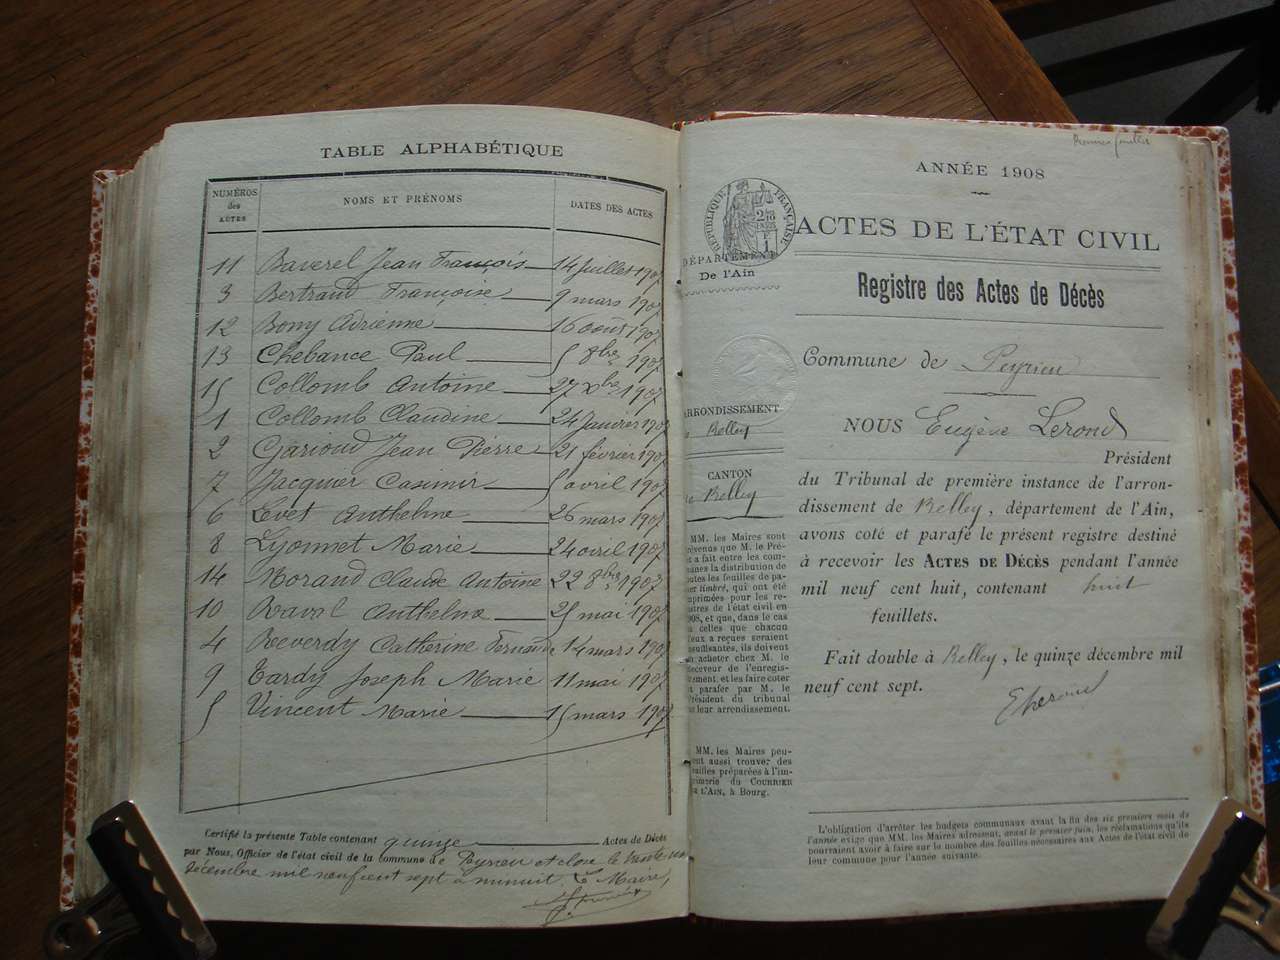 TABLE ALPHABÉTIQUE
NUMÉROS des ACTES
NOMS ET PRÉNOMS
DATES DES ACTES
11 Baverel Jean François 14 juillet 1907
3 Bertrand Françoise 9 mars 1907
12 Bony Adrienne 16 août 1907
13 Chebance Paul 5 8bre 1907
15 Collomb Antoine 27 xbre 1907
1 Collomb Claudine 24 janvier 1907
2 Garioud Jean Pierre 21 février 1907
7 Jacquier Casimir 5 avril 1907
6 Evet Anthelme 26 mars 1907
8 Lyonnet Marie 24 avril 1907
14 Morand Claude Antoine 22 8bre 1907
10 Raval Anthelme 25 mai 1907
4 Reverdy Catherine 14 mars 1907
9 Tardy Joseph Marie 11 mai 1907
5 Vincent Marie 15 mars 1907
Certifié la présente Table contenant quinze Actes de Décès
par Nous, Officier de l'état civil de la commune de Peyrieu et close le trente un
décembre mil neuf cent sept à minuit. Le Maire,
ANNÉE 1908
RÉPUBLIQUE FRANÇAISE
ACTES DE L'ÉTAT CIVIL
DÉPARTEMENT
De l'Ain
Registre des Actes de Décès
Commune de Peyrieu
ARRONDISSEMENT
Belley
CANTON
Belley
NOUS Eugène Lerond
Président
du Tribunal de première instance de l'arron-
dissement de Belley, département de l'Ain,
avons coté et parafé le présent registre destiné
à recevoir les ACTES DE DÉCÈS pendant l'année
mil neuf cent huit, contenant huit
feuillets.
Fait double à Belley, le quinze décembre mil
neuf cent sept.
MM. les Maires sont
prévenus que M. le Pré-
et a fait entre les com-
munes la distribution de
toutes les feuilles de pa-
pier timbré, qui ont été
imprimées pour les re-
istres de l'état civil en
1908, et que, dans le cas
où celles que chacun
d'eux a reçues seraient
insuffisantes, ils doivent
en acheter chez M. le
Receveur de l'enregis-
trement, et les faire coter
et parafer par M. le
Président du tribunal
de leur arrondissement.
MM. les Maires peu-
vent aussi trouver des
feuilles préparées à l'im-
primerie du COURRIER
DE L'AIN, à Bourg.
L'obligation d'arrêter les budgets communaux avant la fin des six premiers mois de
l'année exige que MM. les Maires adressent, avant le premier juin, les réclamations qu'ils
pourraient avoir à faire sur le nombre des feuilles nécessaires aux Actes de l'état civil de
leur commune pour l'année suivante.